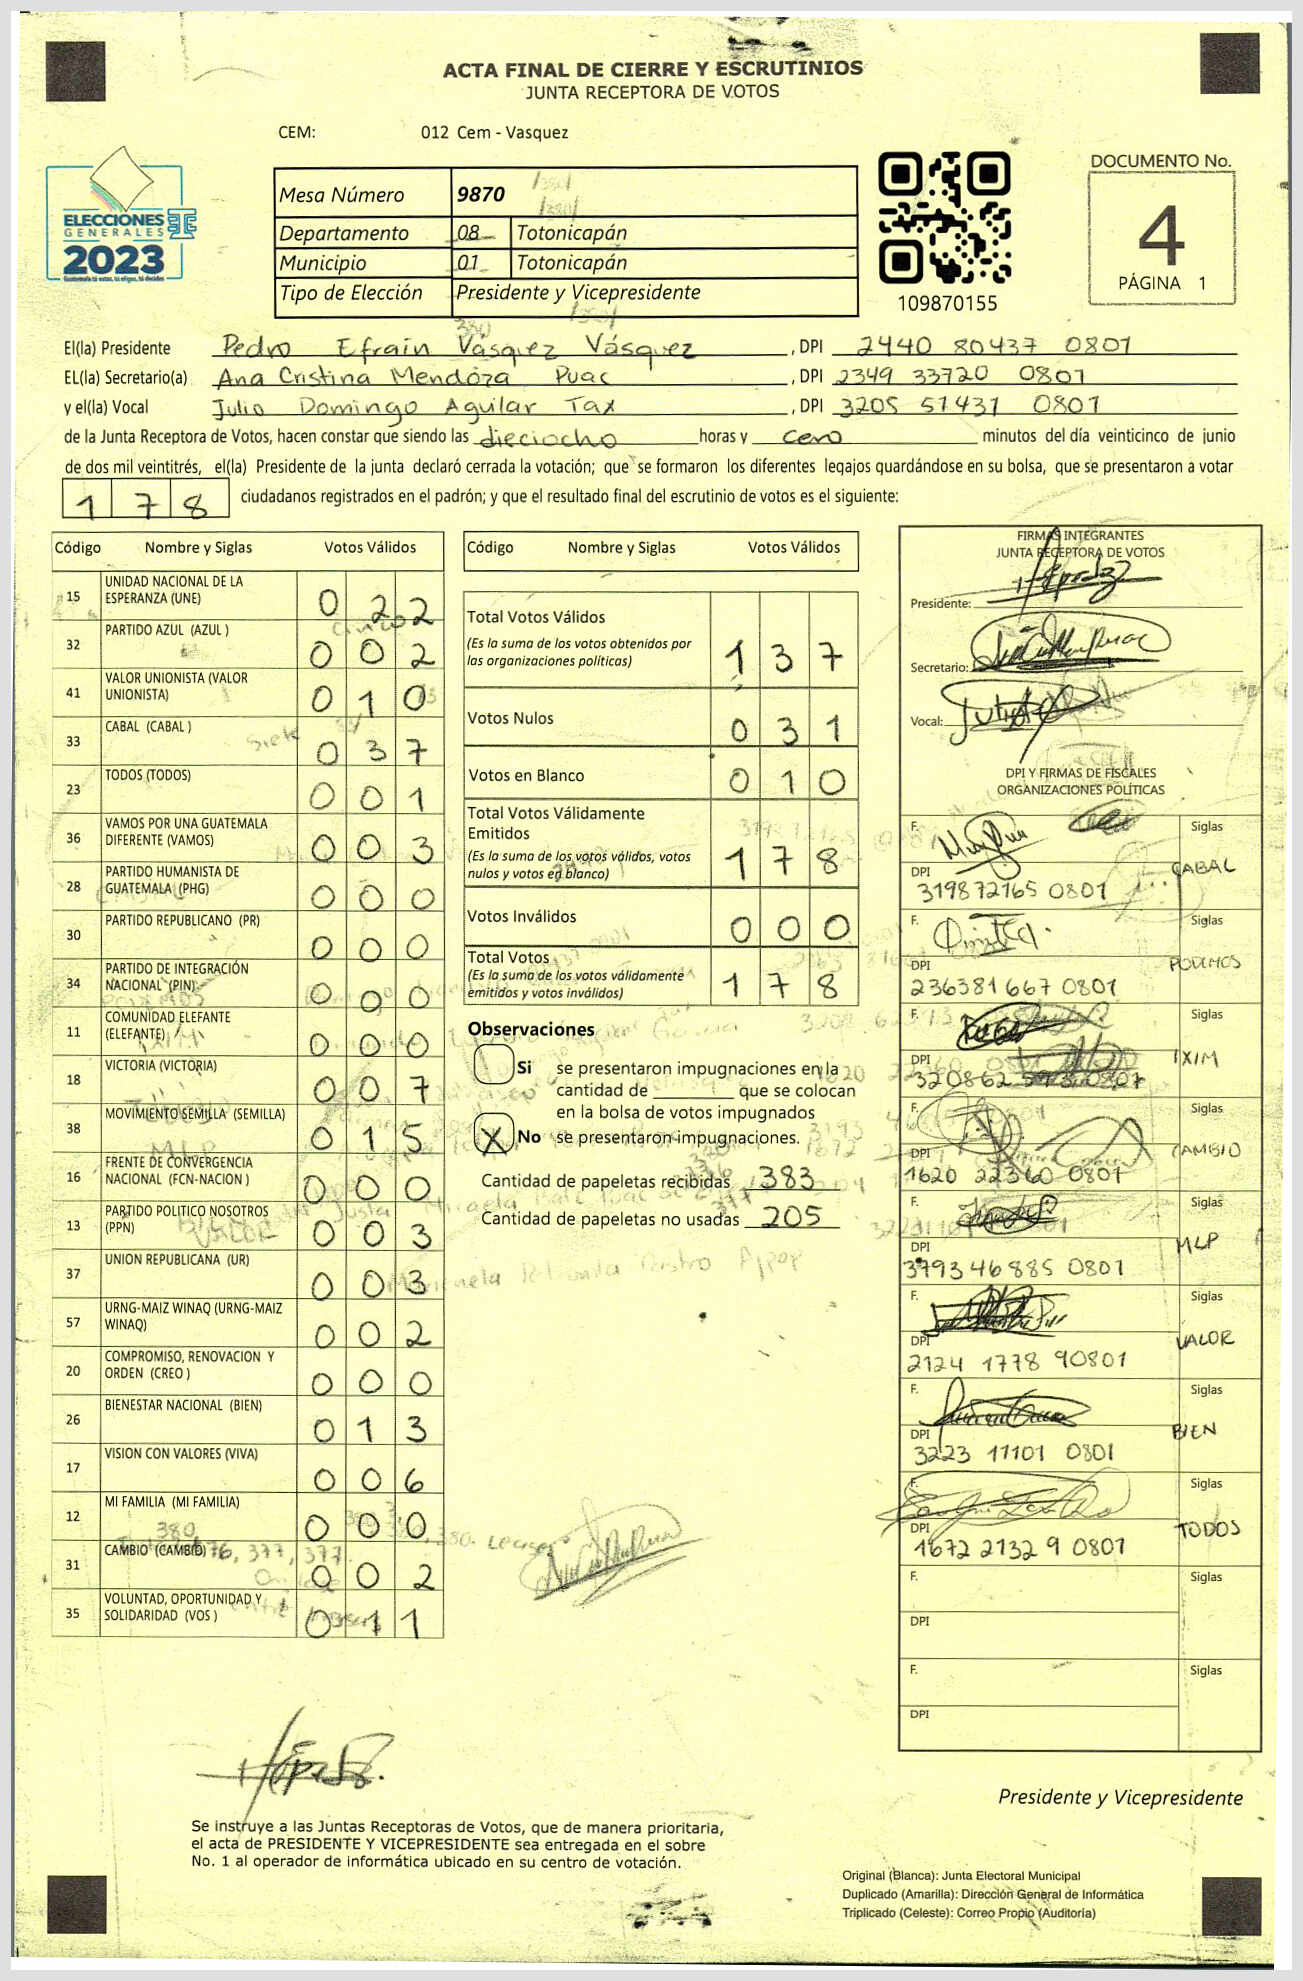 ACTA FINAL DE CIERRE Y ESCRUTINIOS
JUNTA RECEPTORA DE VOTOS
CEM: 012 Cem - Vasquez
ELECCIONES
GENERALES
2023
Mesa Número 9870
Departamento 08 Totonicapán
Municipio 01 Totonicapán
Tipo de Elección Presidente y Vicepresidente
109870155
DOCUMENTO No.
4
PÁGINA 1
El(la) Presidente Pedro Efraín Vásquez Vásquez, DPI 2440 80437 0801
EL(la) Secretario(a) Ana Cristina Mendóza Puac, DPI 2349 33720 0801
y el(la) Vocal Julio Domingo Aguilar Tax, DPI 3205 51431 0801
de la Junta Receptora de Votos, hacen constar que siendo las dieciocho horas y cero minutos del día veinticinco de junio
de dos mil veintitrés, el(la) Presidente de la junta declaró cerrada la votación; que se formaron los diferentes legajos quardándose en su bolsa, que se presentaron a votar
178 ciudadanos registrados en el padrón; y que el resultado final del escrutinio de votos es el siguiente:
Código Nombre y Siglas Votos Válidos
15 UNIDAD NACIONAL DE LA ESPERANZA (UNE) 022
32 PARTIDO AZUL (AZUL ) 002
41 VALOR UNIONISTA (VALOR UNIONISTA) 010
33 CABAL (CABAL ) 037
23 TODOS (TODOS) 001
36 VAMOS POR UNA GUATEMALA DIFERENTE (VAMOS) 003
28 PARTIDO HUMANISTA DE GUATEMALA (PHG) 000
30 PARTIDO REPUBLICANO (PR) 000
34 PARTIDO DE INTEGRACIÓN NACIONAL (PIN) 000
11 COMUNIDAD ELEFANTE (ELEFANTE) 000
18 VICTORIA (VICTORIA) 007
38 MOVIMIENTO SEMILLA (SEMILLA) 015
16 FRENTE DE CONVERGENCIA NACIONAL (FCN-NACION ) 000
13 PARTIDO POLITICO NOSOTROS (PPN) 003
37 UNION REPUBLICANA (UR) 003
57 URNG-MAIZ WINAQ (URNG-MAIZ WINAQ) 002
20 COMPROMISO, RENOVACION Y ORDEN (CREO ) 000
26 BIENESTAR NACIONAL (BIEN) 013
17 VISION CON VALORES (VIVA) 006
12 MI FAMILIA (MI FAMILIA) 000
31 CAMBIO (CAMBIO) 002
35 VOLUNTAD, OPORTUNIDAD Y SOLIDARIDAD (VOS ) 011
Código Nombre y Siglas Votos Válidos
Total Votos Válidos 137
(Es la suma de los votos obtenidos por
las organizaciones políticas)
Votos Nulos 031
Votos en Blanco 010
Total Votos Válidamente
Emitidos 178
(Es la suma de los votos válidos, votos
nulos y votos en blanco)
Votos Inválidos 000
Total Votos 178
(Es la suma de los votos válidamente
emitidos y votos inválidos)
Observaciones
Si se presentaron impugnaciones en la
cantidad de que se colocan
en la bolsa de votos impugnados
X No se presentaron impugnaciones.
Cantidad de papeletas recibidas 383
Cantidad de papeletas no usadas 205
FIRMAS INTEGRANTES
JUNTA RECEPTORA DE VOTOS
Presidente:
Secretario:
Vocal:
DPI Y FIRMAS DE FISCALES
ORGANIZACIONES POLÍTICAS
F. Siglas
DPI CABAL
319872165 0801
F. Siglas
DPI PODEMOS
236381667 0801
F. Siglas
DPI IXIM
F. Siglas
DPI CAMBIO
1620 22360 0801
F. Siglas
DPI MLP
3793 46885 0801
F. Siglas
DPI VALOR
2124 1778 90801
F. Siglas
DPI BIEN
3223 11101 0801
F. Siglas
DPI TODOS
1672 2132 9 0801
F. Siglas
DPI
F. Siglas
DPI
Presidente y Vicepresidente
Se instruye a las Juntas Receptoras de Votos, que de manera prioritaria,
el acta de PRESIDENTE Y VICEPRESIDENTE sea entregada en el sobre
No. 1 al operador de informática ubicado en su centro de votación.
Original (Blanca): Junta Electoral Municipal
Duplicado (Amarilla): Dirección General de Informática
Triplicado (Celeste): Correo Propio (Auditoría)